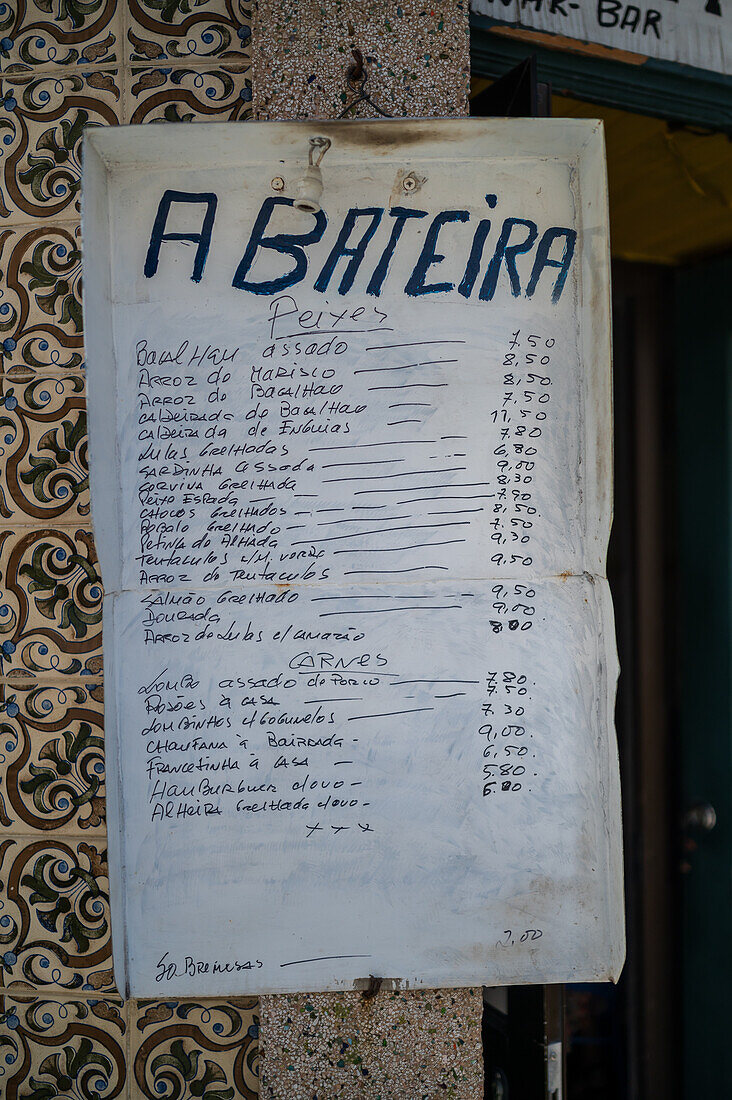 NAR-BAR
A BATEIRA
Peixes
BACALHAU assado 7.50
ARROZ de MARisco 8,50
ARROZ de BACALHAU 8,50
CALDEIRADA de BACALHAU 7,50
CALDEIRADA de ENGUIAS 11,50
LULAS GRELHADAS 7.80
SARDINHA ASSADA 6,80
CORVINA GRELHADA 9,00
Peixe ESPADA 8,30
CHOCOS GRELHADOS 7.90
ROBALO GRELHADO 8,50
Petinga de ALHADA 7.50
TENTACULOS c/M. VERDE 9,30
ARROZ de TENTACULOS 9,50
SALMÃO GRELHADO 9,50
DOURADA 9,00
ARROZ de LULAS c/ CAMARÃO 8,00
CARNES
LOMBO assado de PORCO 7.80
ROJÕES à CASA 7.50.
LOMBINHOS c/ COGUMELOS 7.30
CHANFANA à BAIRRADA - 9,00.
FRANCESINHA à CASA - 6,50.
HAMBURGUER c/ovo - 5.80.
ALHEIRA GRELHADA c/ovo - 6.80.
x x x
SOBREMESAS 2,00